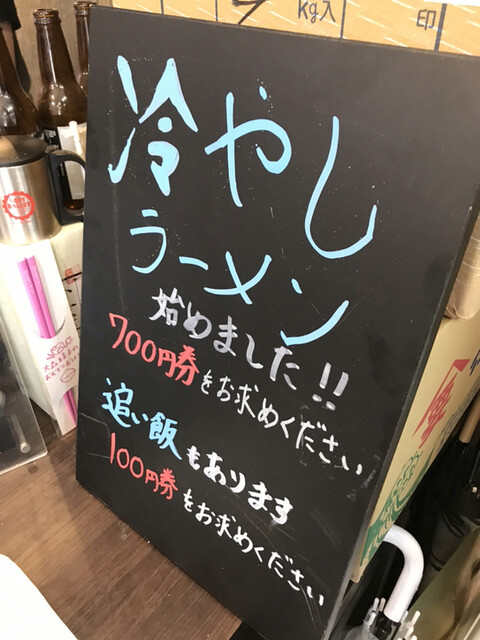 kg入
印
冷やし
ラーメン
始めました!!
700円券をお求めください
追い飯もあります
100円券をお求めください